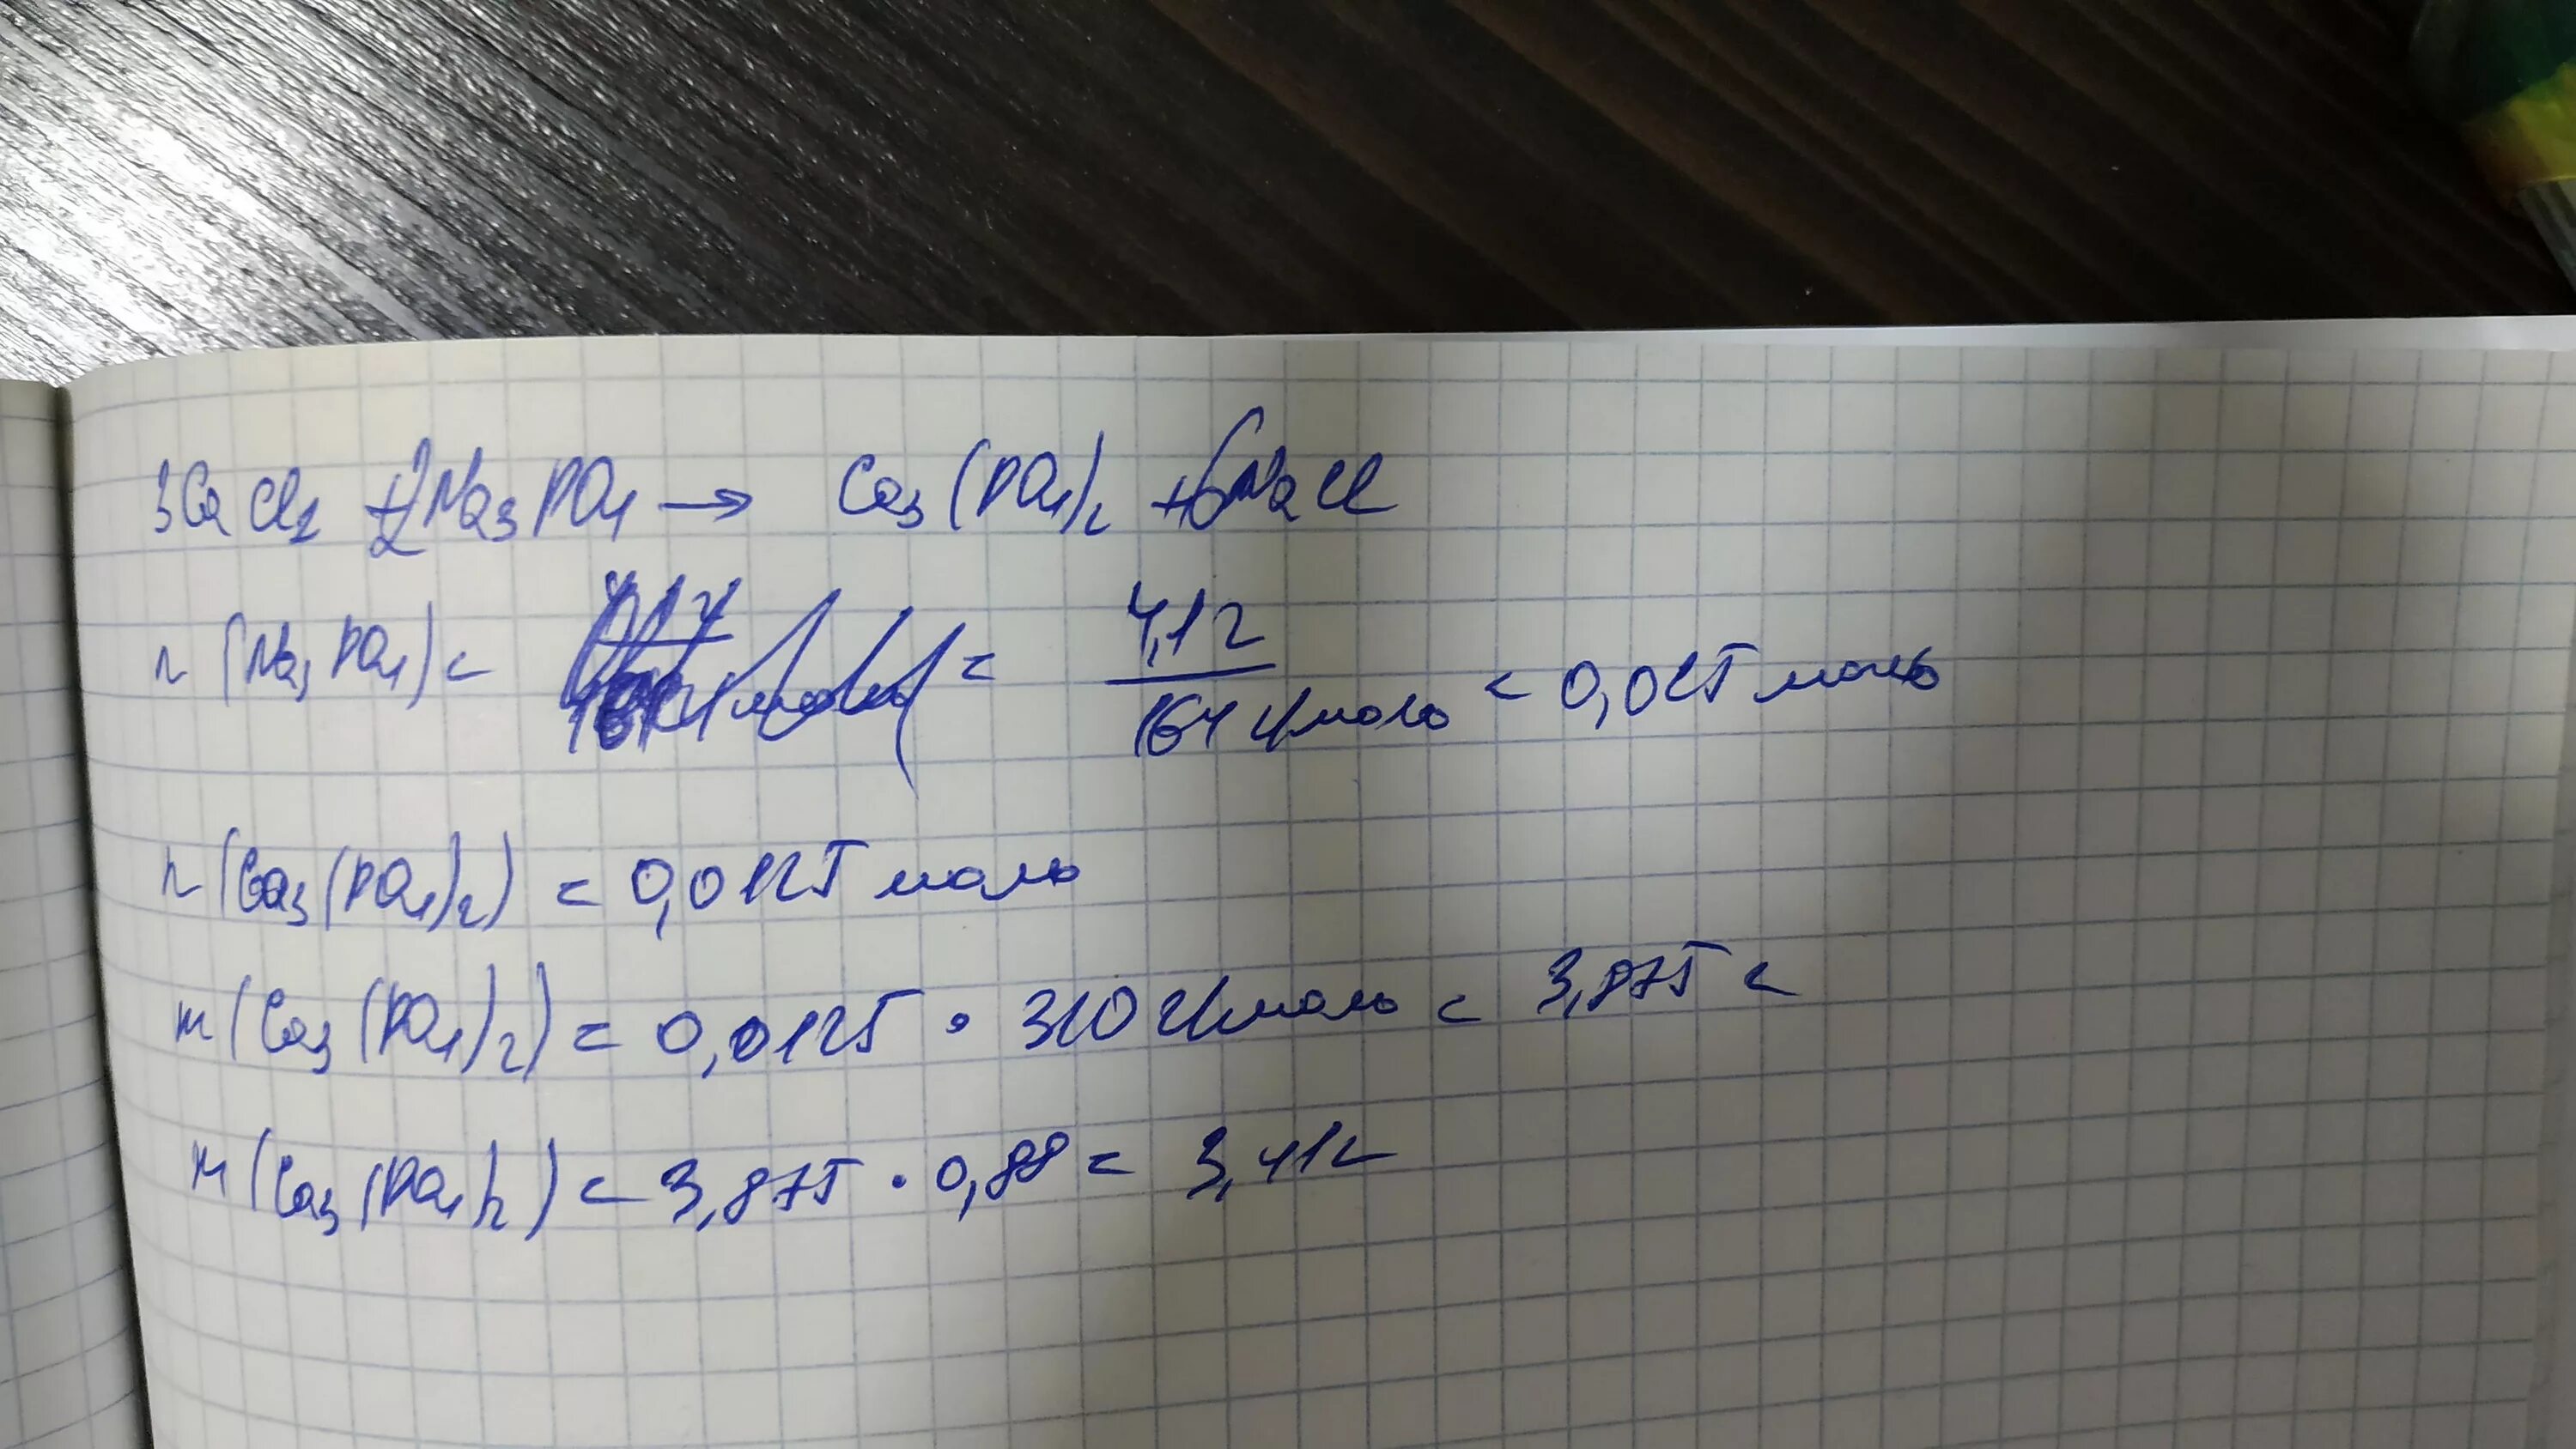 3CaCl2 + 2Na3PO4 → Ca3(PO4)2 + 6NaCl
n(Na3PO4) = = 4,1г / 164 г/моль = 0,025 моль
n(Ca3(PO4)2) = 0,0125 моль
m(Ca3(PO4)2) = 0,0125 · 310 г/моль = 3,875 г
m(Ca3(PO4)2) = 3,875 · 0,88 = 3,41г